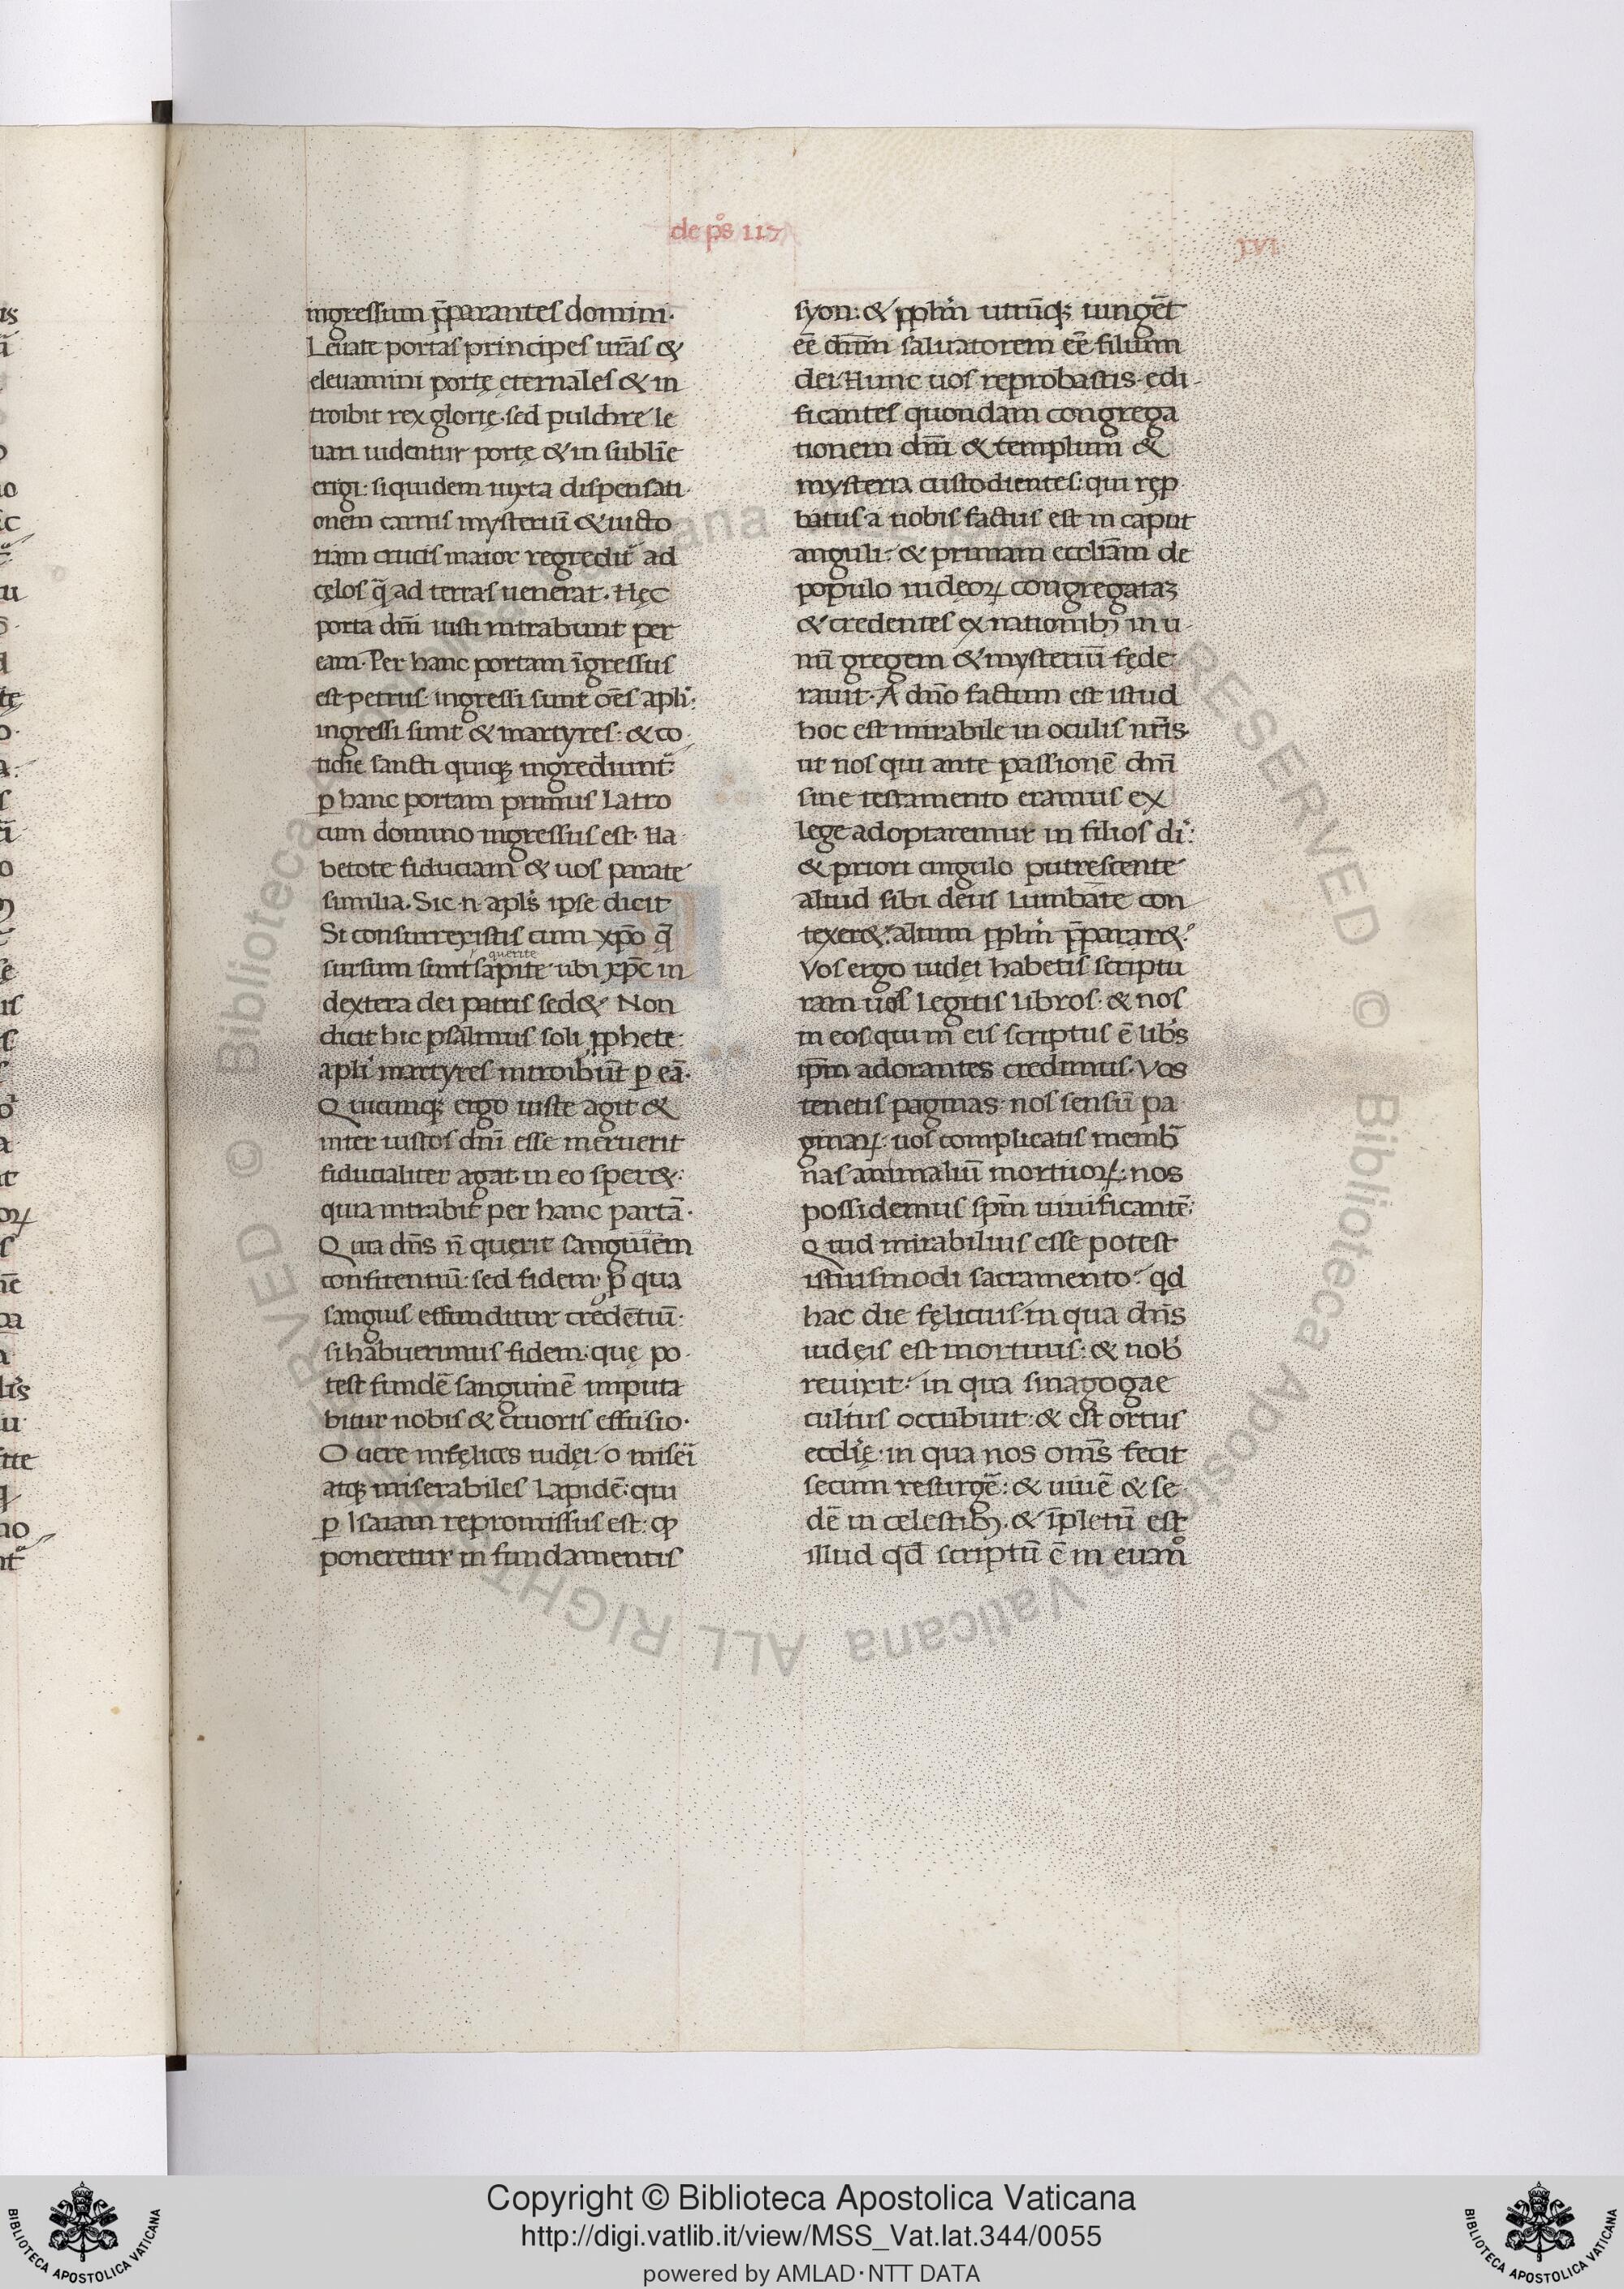 de pͦs 117
lvi
ingressum p̄parantes domini·
Leuate portas principes urās &
eleuamini portę ęternales & in
troibit rex glorię· sed pulchre le
uari uidentur portę & in sublīe
erigi: siquidem iuxta dispensati
onem carnis mysteriū & uicto
riam crucis maior regredit᷑ ad
cęlos q̄ ad terras uenerat· Hęc
porta dn̄i iusti intrabunt per
eam· Per hanc portam īgressus
est petrus· ingressi sunt oēs apl̄i:
ingressi sunt & martyres: & co
tidie sancti quiqꝫ ingrediunt᷑:
ꝑ hanc portam primus latro
cum domino ingressus est· Ha
betote fiduciam & uos parate
similia· Sic n̄ apl̄s ipse dicit
Si consurrexistis cum xp̄o q̄
querite
sursum sunt sapite ubi xp̄c in
dextera dei patris sed&· Non
dicit hic psalmus soli ꝓphete:
apl̄i martyres introibūt ꝑ eā·
Quicunqꝫ ergo iuste agit &
inter iustos dn̄i esse meruerit
fiducialiter agat· in eo sper&:
quia intrabit per hanc partā·
Quia dn̄s n̄ querit sanguinem
confitentiū: sed fidem· ꝑ qua
sanguis effunditur credētiū:
si habuerimus fidem: quę po
test fundē sanguinē imputa
bitur nobis & cruoris effusio·
O uere infęlices iudęi· o misēi
atqꝫ miserabiles lapidē: qui
ꝑ Isaiam repromissus est: ꝙ
poneretur in fundamentis
syon: & ꝓphm̄ utrūqꝫ iungēt
eē dn̄m saluatorem eē filium
dei. Hunc uos reprobastis· edi
ficantes quondam congrega
tionem dn̄i & templum &
mysteria custodientes: qui rep
batus a nobis factus est in caput
anguli: & primam eccliām de
populo iudęoꝝ congregataꝫ
& credentes ex nationibꝫ in u
nū gregem & mysteriū fęde
rauit· A dn̄o factum est istud
hoc est mirabile in oculis nr̄is·
ut nos qui ante passionē dn̄i
sine testamento eramus ex
lege adoptaremur in filios di:
& priori cingulo putrescente
aliud sibi deus lumbare con
texer&: alium ꝓphm̄ p̄parar&:
Vos ergo iudęi habetis scriptu
ram uos legitis libros: & nos
in eos qui in eis scriptus ē lib̄s
ip̄m adorantes credimus· Vos
tenetis paginas· nos sensū pa
ginaꝝ: uos complicatis memb̄
nas animaliū mortuoꝝ: nos
possidemus sp̄m uiuificantē:
Quid mirabilius esse potest
istiusmodi sacramento: qd̄
hac die fęlicius· in qua dn̄s
iudęis est mortuus: & nob̄
reuixit: in qua sinagogae
cultus occubuit: & est ortus
eccl̄ię: in qua nos om̄s fecit
secum resurgē: & uiuē & se
dē in celestibꝫ· & īpletū est
illud qd̄ scriptū ē in euamͦ
Copyright © Biblioteca Apostolica Vaticana
http://digi.vatlib.it/view/MSS_Vat.lat.344/0055
powered by AMLAD·NTT DATA